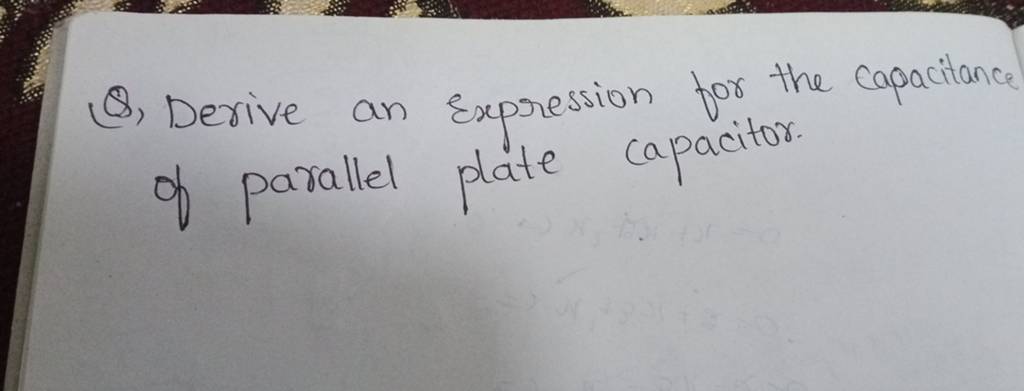 Q, Derive an Expression for the Capacitance
of parallel plate capacitor.